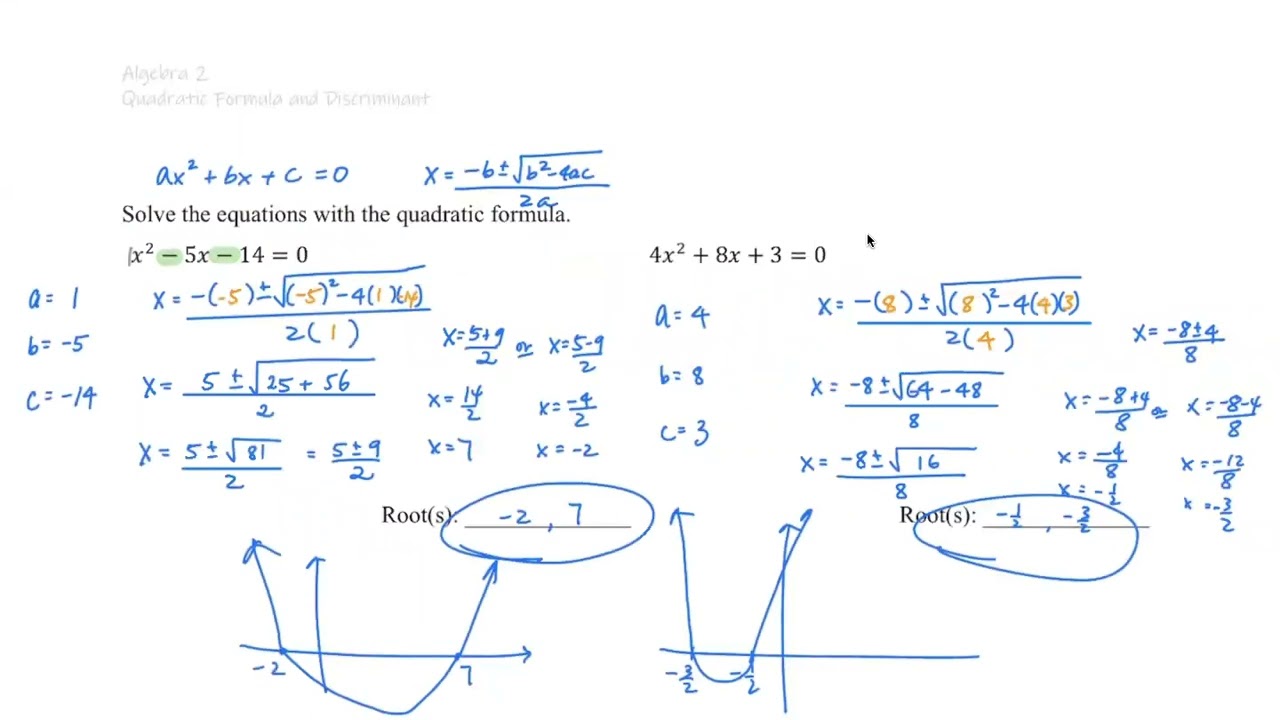 Algebra 2
Quadratic Formula and Discriminant
ax² + bx + c = 0
x = (-b ± √(b² - 4ac)) / 2a
Solve the equations with the quadratic formula.
1x² − 5x − 14 = 0
a = 1
b = -5
c = -14
x = (-(-5) ± √((-5)² - 4(1)(-14))) / 2(1)
x = (5 ± √(25 + 56)) / 2
x = (5 ± √81) / 2 = (5 ± 9) / 2
x = (5+9)/2 or x = (5-9)/2
x = 14/2 x = -4/2
x = 7 x = -2
Root(s): -2 , 7
-2 7
4x² + 8x + 3 = 0
a = 4
b = 8
c = 3
x = (-(8) ± √((8)² - 4(4)(3))) / 2(4)
x = (-8 ± √(64 - 48)) / 8
x = (-8 ± √16) / 8
x = (-8 ± 4) / 8
x = (-8+4)/8 or x = (-8-4)/8
x = -4/8 x = -12/8
x = -1/2 x = -3/2
Root(s): -1/2 , -3/2
-3/2 -1/2